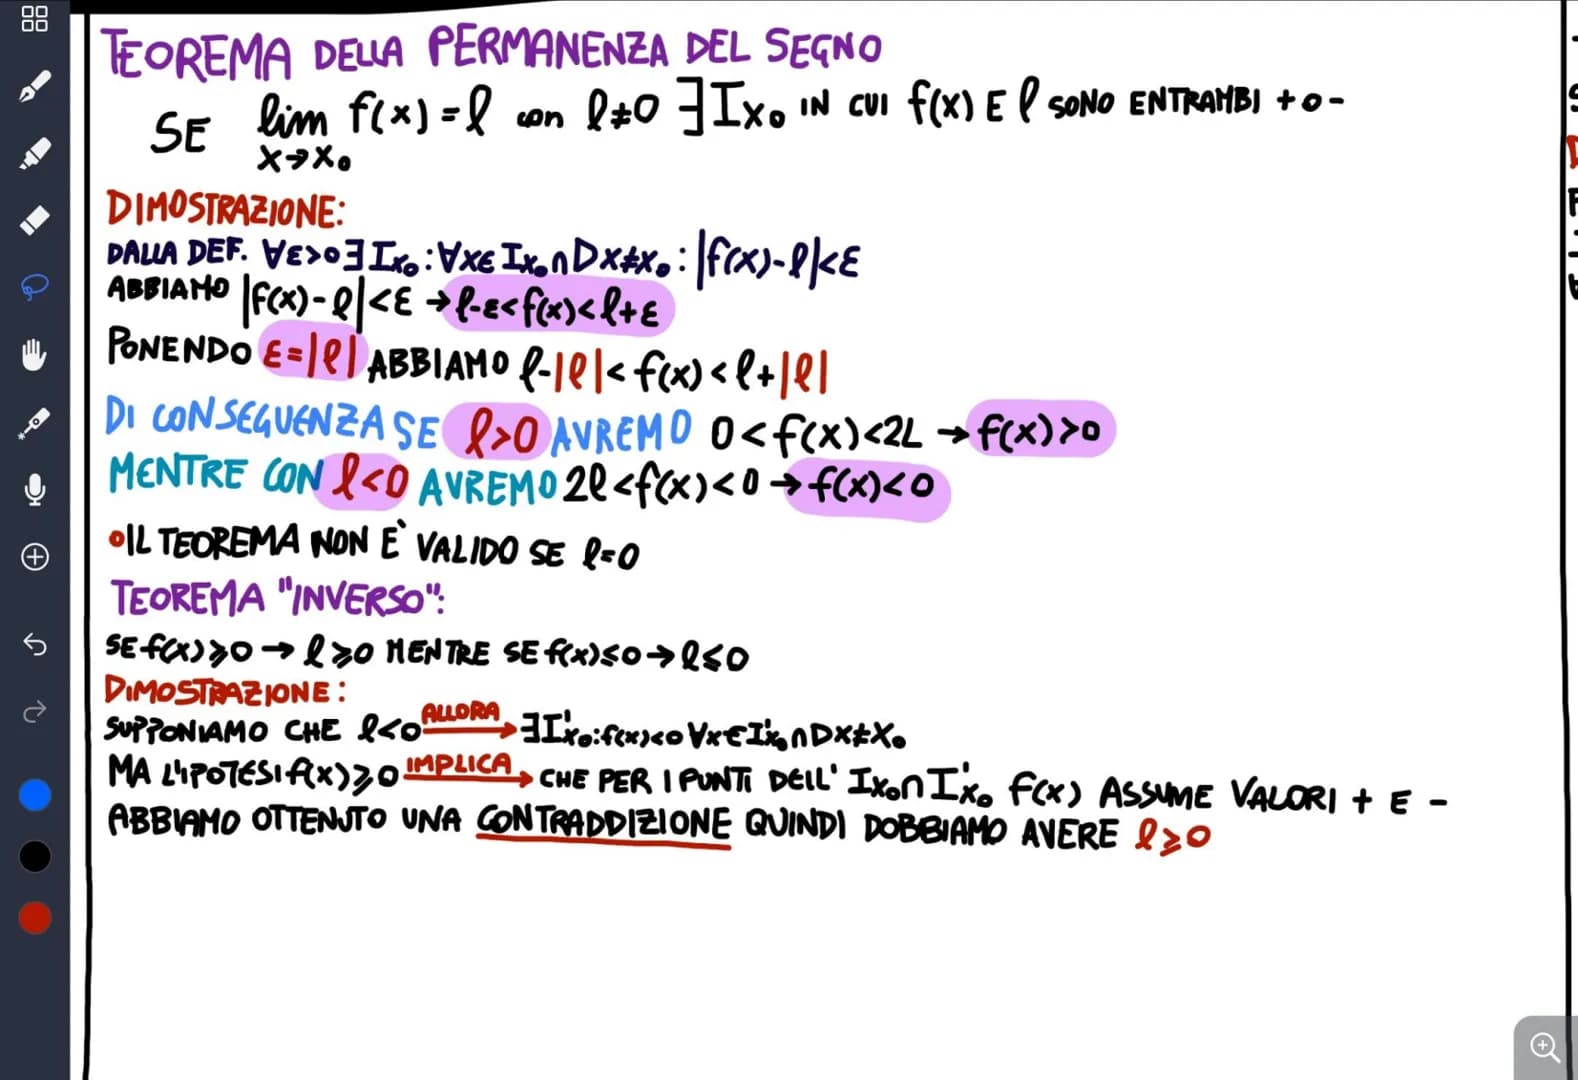 TEOREMA DELLA PERMANENZA DEL SEGNO
SE lim f(x) = l con l≠0 ∃Ix₀ IN CUI f(x) E l SONO ENTRAMBI + o -
x→x₀
DIMOSTRAZIONE:
DALLA DEF. ∀ε>0∃Ix₀:∀x∈Ix₀∩D x≠x₀:|f(x)-l|<ε
ABBIAMO |f(x)-l|<ε → l-ε<f(x)<l+ε
PONENDO ε=|l| ABBIAMO l-|l|<f(x)<l+|l|
DI CONSEGUENZA SE l>0 AVREMO 0<f(x)<2L → f(x)>0
MENTRE CON l<0 AVREMO 2l<f(x)<0 → f(x)<0
•IL TEOREMA NON È VALIDO SE l=0
TEOREMA "INVERSO":
SE f(x)⩾0 → l⩾0 MENTRE SE f(x)≤0 → l≤0
DIMOSTRAZIONE:
SUPPONIAMO CHE l<0 ALLORA → ∃I'x₀:f(x)<0 ∀x∈I'x₀∩D x≠x₀
MA L'IPOTESI f(x)⩾0 IMPLICA → CHE PER I PUNTI DELL' Ix₀∩I'x₀ f(x) ASSUME VALORI + E -
ABBIAMO OTTENUTO UNA CONTRADDIZIONE QUINDI DOBBIAMO AVERE l≥0